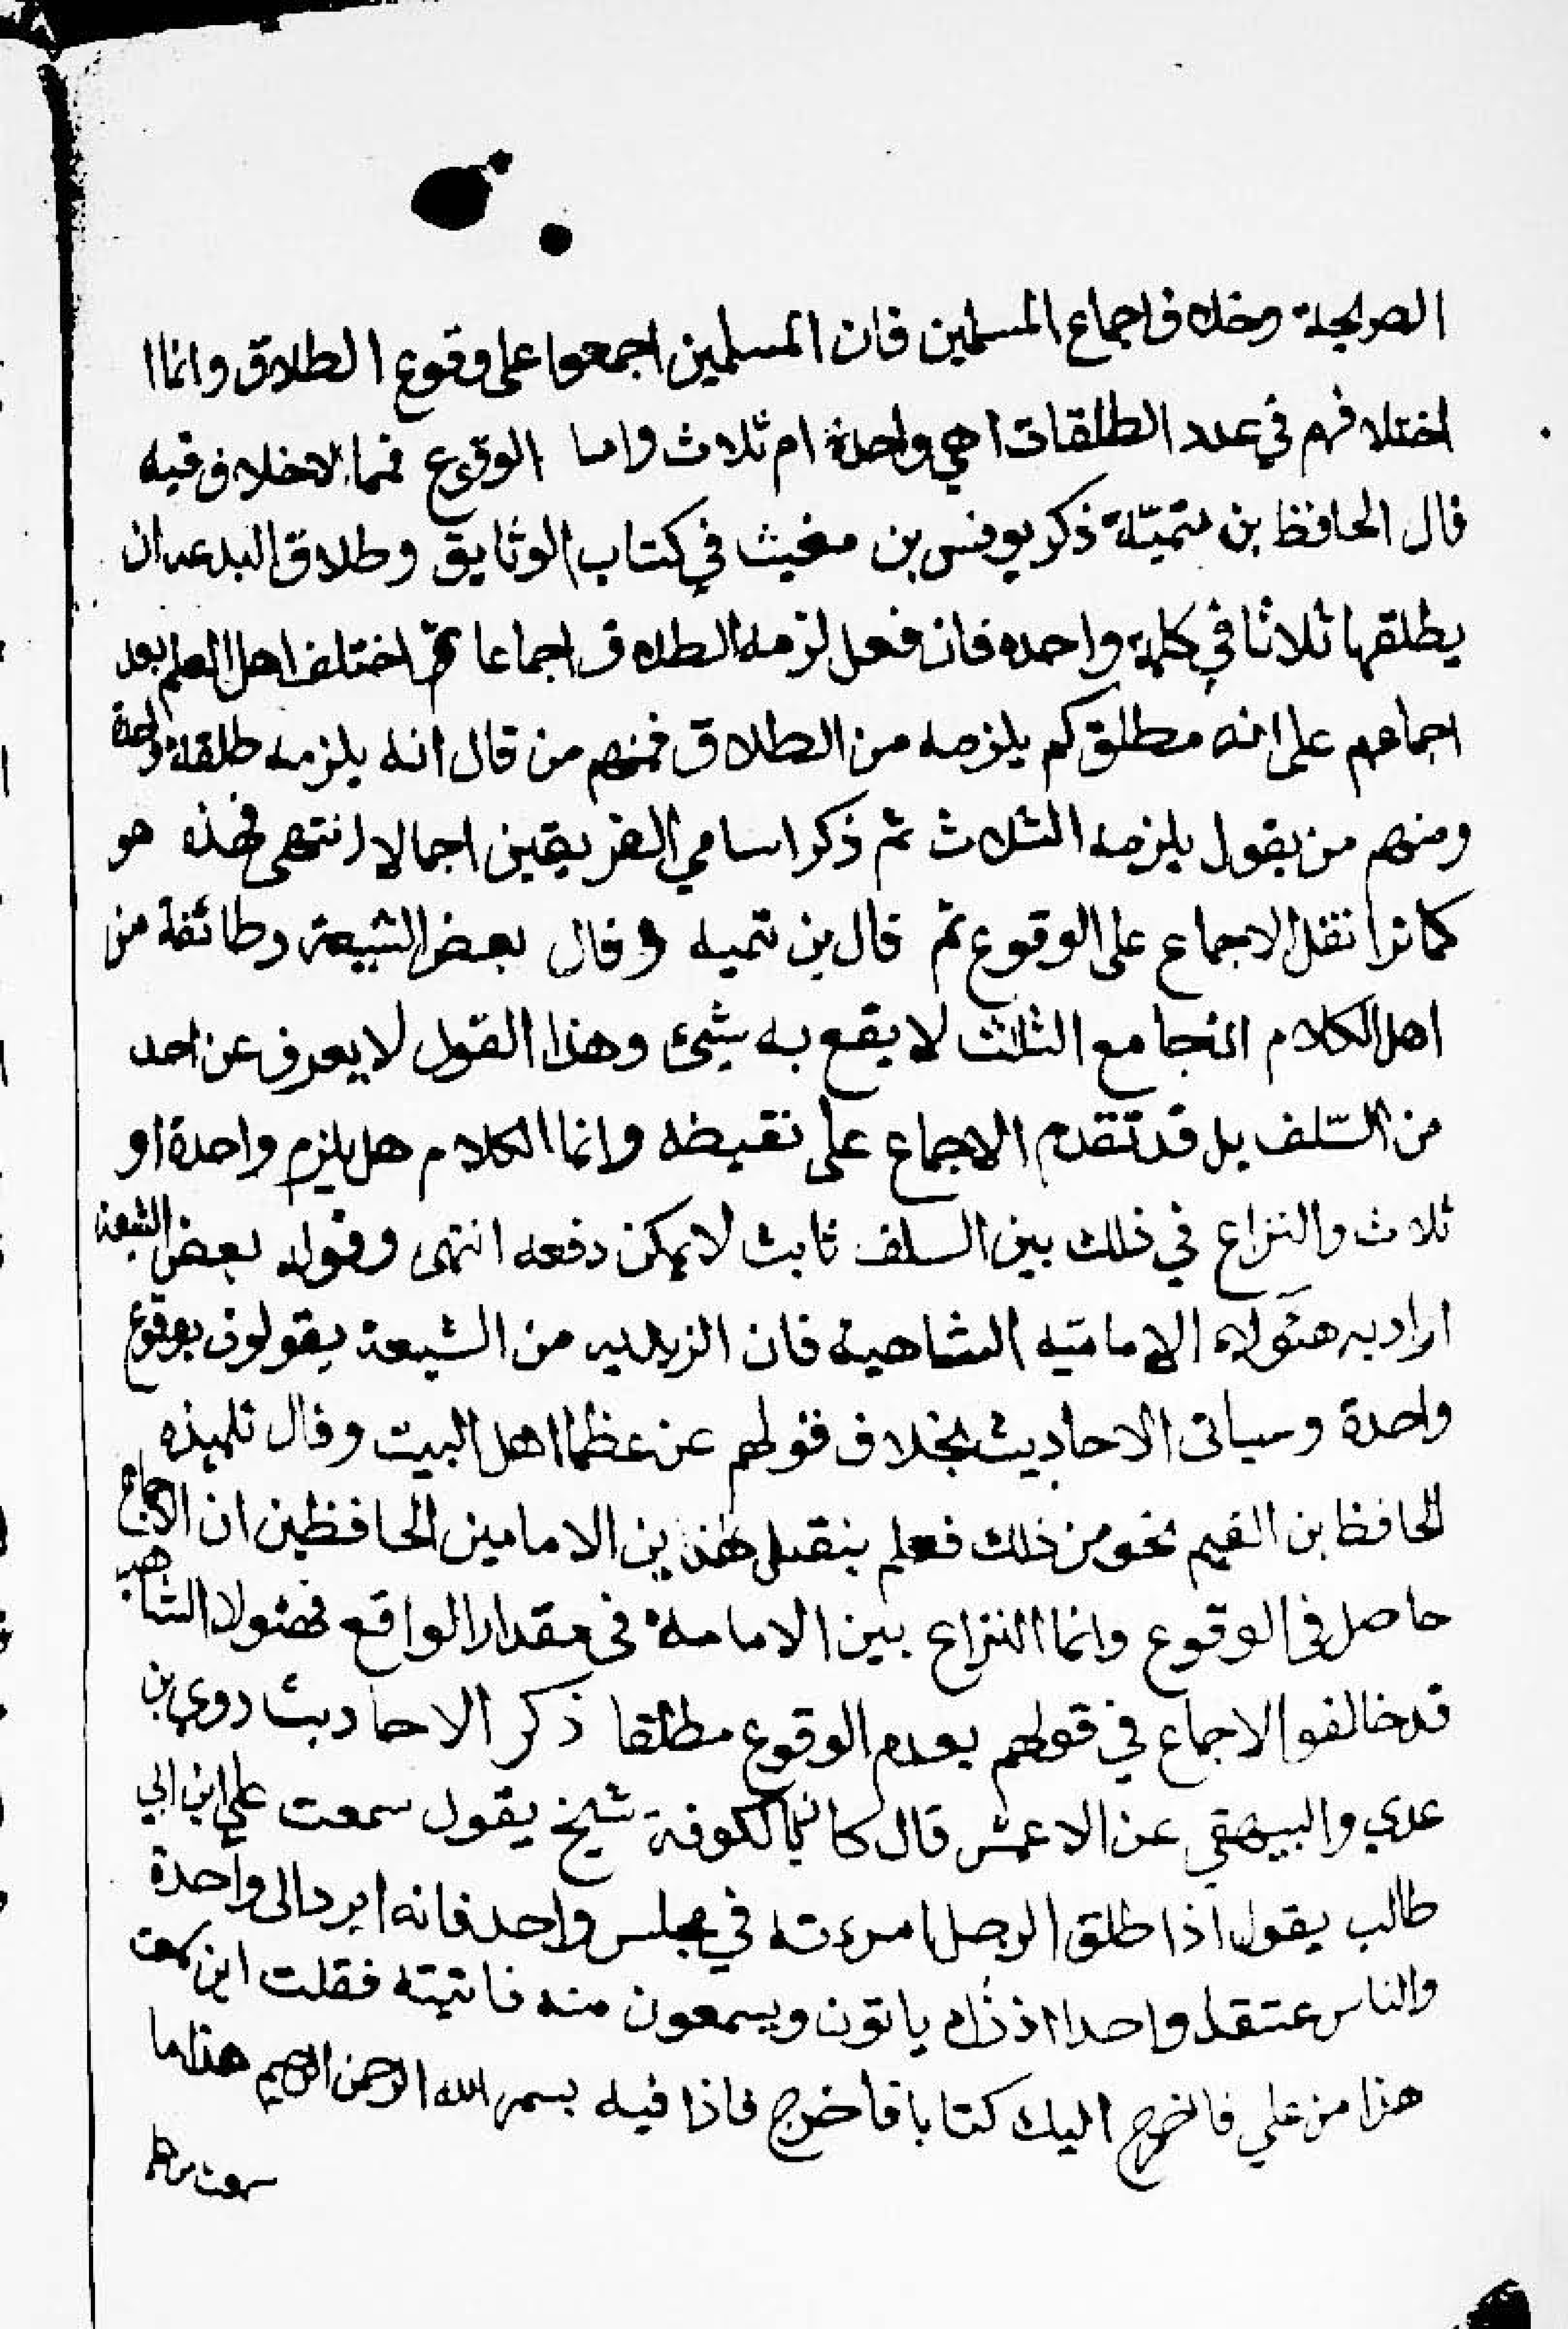 الصريحة وخلاف اجماع المسلمين فان المسلمين اجمعوا على وقوع الطلاق وانما ا
اختلافهم في عدد الطلقات اهي واحدة ام ثلاث واما الوقوع فمما لا خلاف فيه
قال الحافظ بن تميّة ذكر يونس بن مغيث في كتاب الوثايق وطلاق البدعه ان
يطلقها ثلاثا في كلمة واحده فان فعل لزمه الطلاق اجماعا ثم اختلف اهل العلم بعد
اجماعهم على انه مطلق كم يلزمه من الطلاق فمنهم من قال انه يلزمه طلقة واحدة
ومنهم من يقول يلزمه الثلاث ثم ذكر اسامي الفريقين اجمالا انتهى فهذه هو
كما ترا نقل الاجماع على الوقوع ثم قال بن تميه وقال بعض الشيعة وطائفة من
اهل الكلام الجامع الثلث لا يقع به شئ وهذا القول لا يعرف عن احد
من السّلف بل قد تقدم الاجماع على نقيضه وانما الكلام هل يلزم واحدة او
ثلاث والنزاع في ذلك بين السلف ثابت لا يمكن دفعه انتهى وقوله بعض الشيعة
اراد به هئولاء الاماميّه الشاهية فان الزيديه من الشيعة يقولون بوقوع
واحدة وسياتى الاحاديث بخلاف قولهم عن عظما اهل البيت وقال تلميذه
الحافظ بن القيم نحو من ذلك فعلم بنقل هذين الامامين الحافظين ان الاجماع
حاصل فى الوقوع وانما النزاع بين الامامة فى مقدار الواقع فهئولا الشاهيه
قد خالفوا الاجماع في قولهم بعدم الوقوع مطلقا ذكر الاحاديث روي بن
عدي والبيهقي عن الاعمش قال كان بالكوفة شيخ يقول سمعت علي ابن ابي
طالب يقول اذا طلق الرجل امرءته في مجلس واحد فانه ايرد الى واحدة
والناس عنقا واحدا اذ ذاك ياتون ويسمعون منه فاتيته فقلت اين سمعت
هذا من علي فاخرج اليك كتابا فاخرج فاذا فيه بسم الله الرحمن الرحيم هذا ما
سمعت من علي